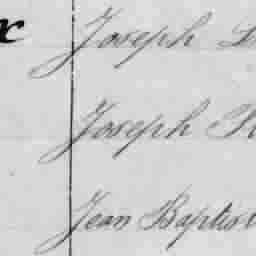 Joseph
Joseph
Jean Baptist